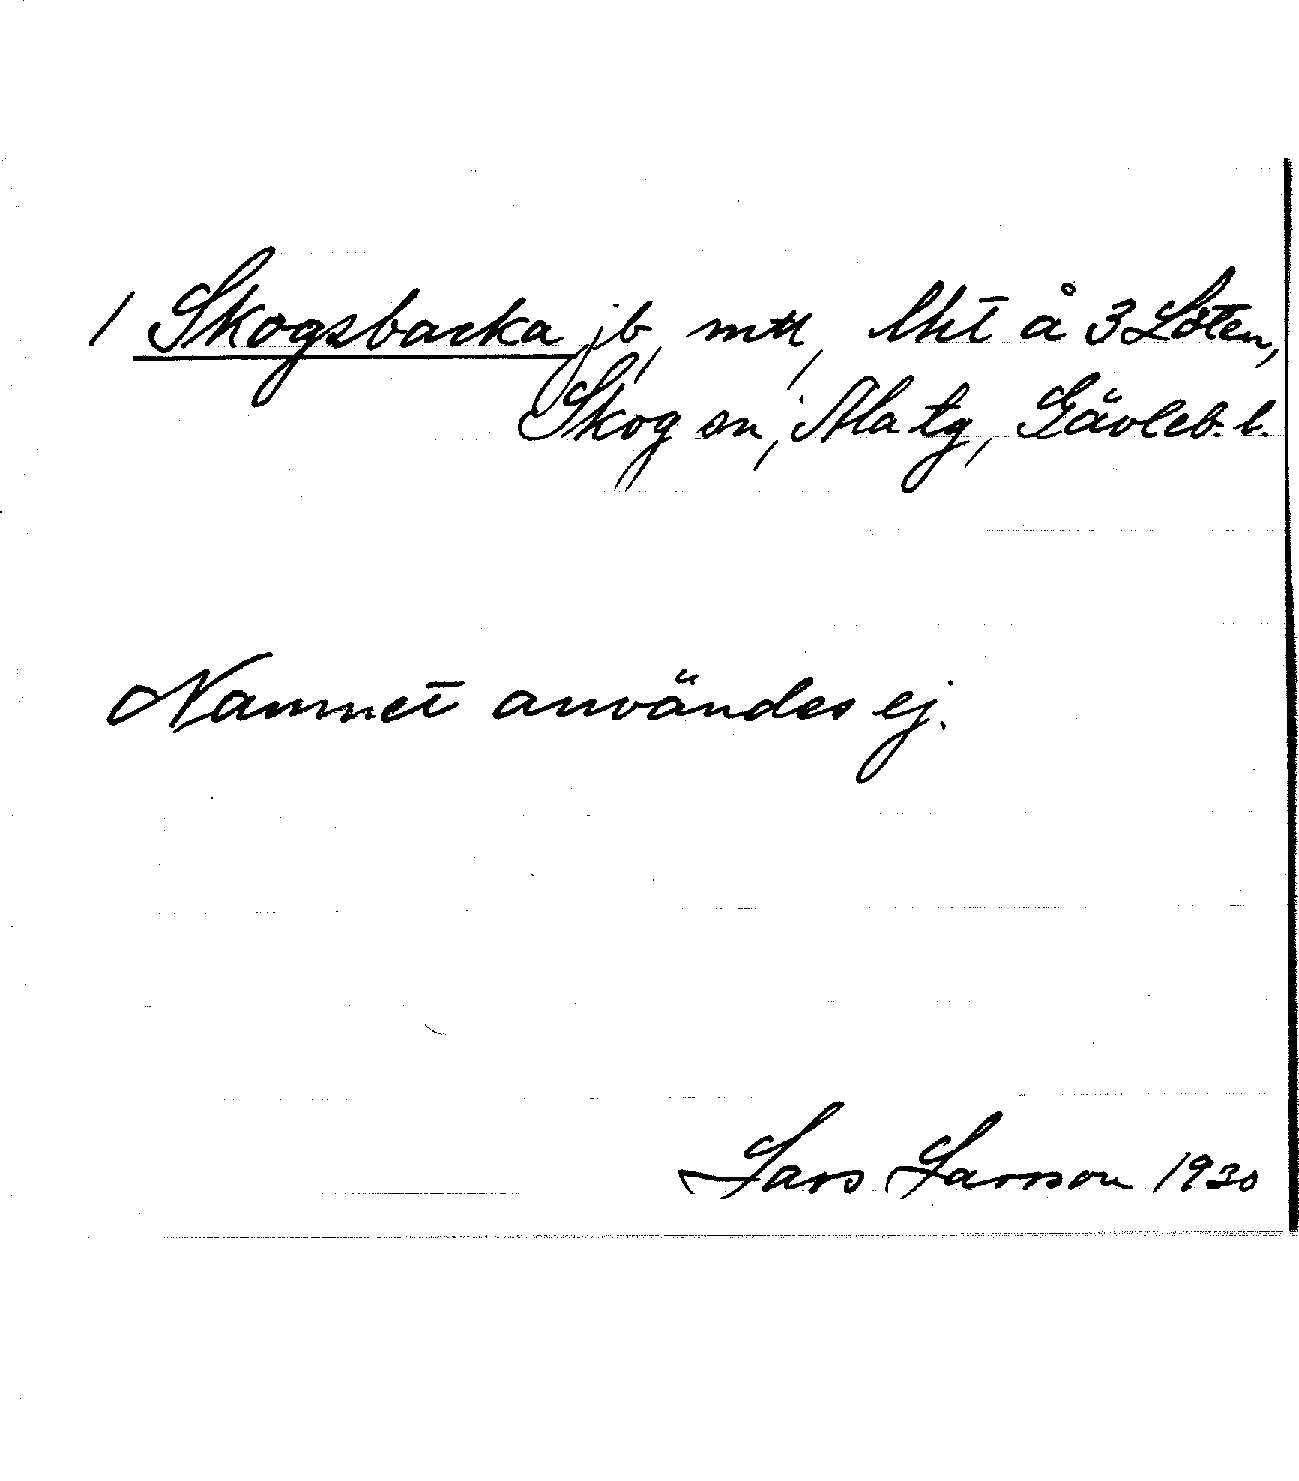 1 Skogsbacka jb, mtl, lht å 3 Löten,
Skog sn, Ala tg, Gävleb. l.
Namnet användes ej.
Lars Larsson 1930